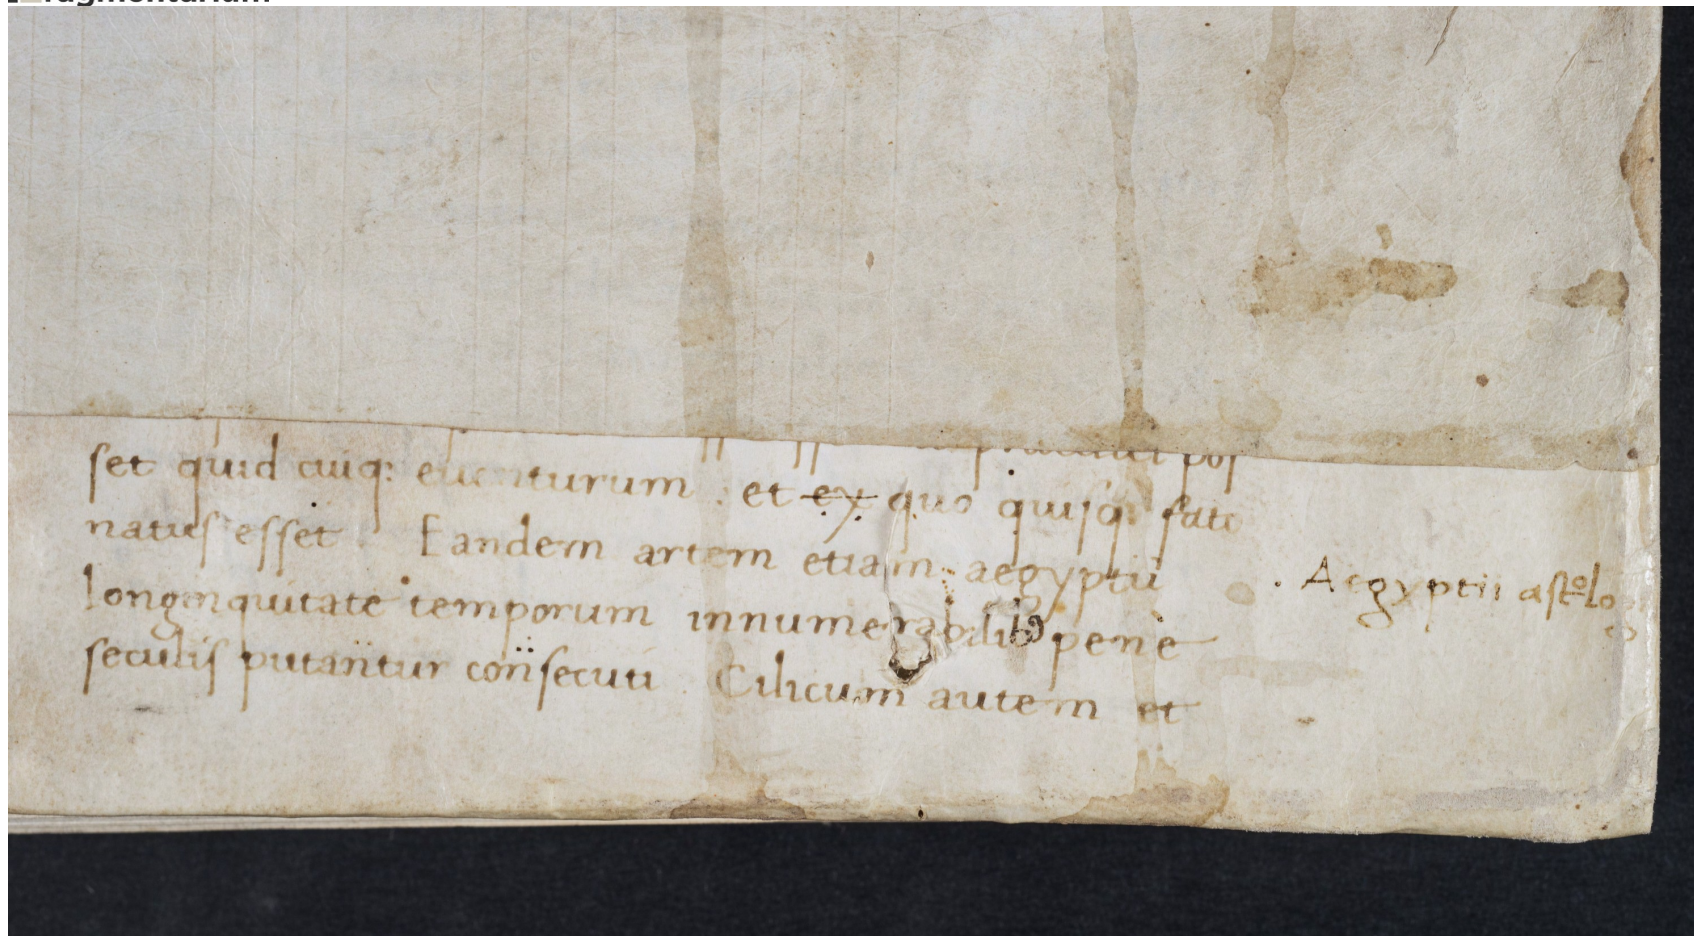 set quid cuiq: euenturum . et ex quo quisq: fato
natus esset . Eandem artem etiam aegyptii
longinquitate temporum innumerabilib; pene
seculis putantur consecuti . Cilicum autem et
. Aegyptii astrolog